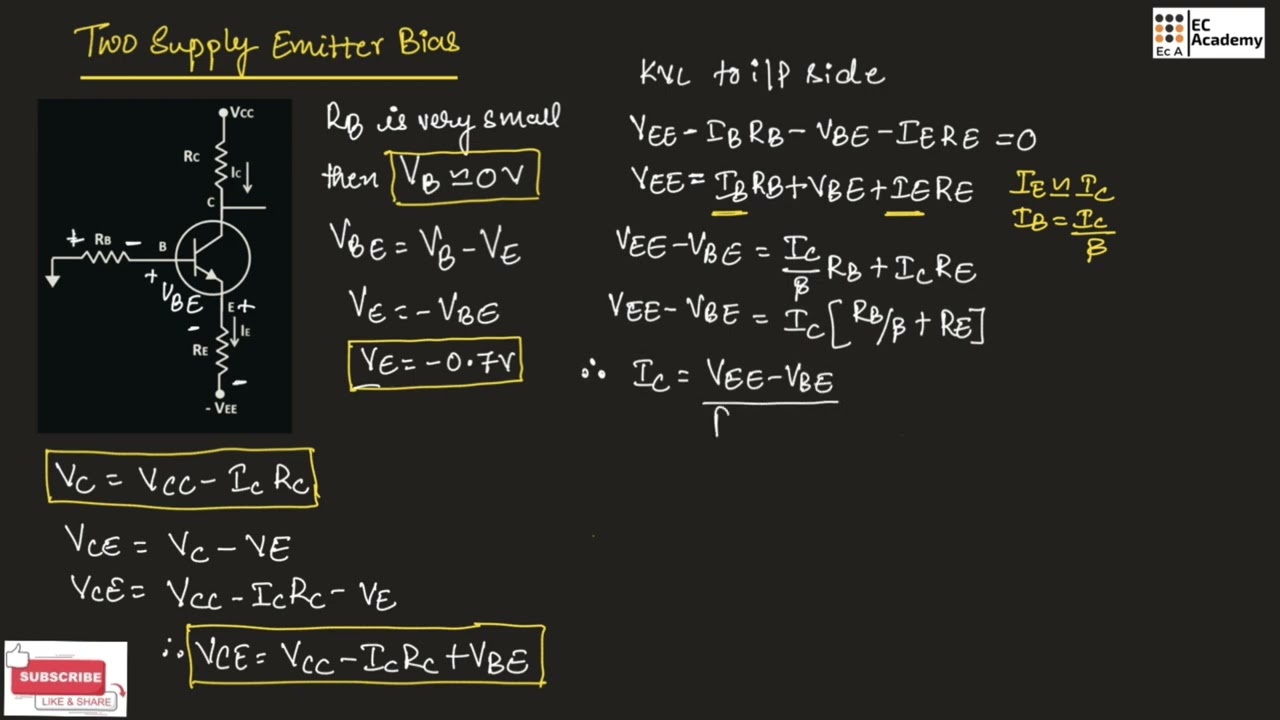 Two Supply Emitter Bias
EC
Academy
Ec A
VCC
RC
IC
C
+ RB -
B
+
VBE
-
E +
IE
RE
-
- VEE
RB is very small
then VB ≃ 0V
VBE = VB - VE
VE = - VBE
VE = -0.7V
KVL to i/p side
VEE - IBRB - VBE - IERE = 0
VEE = IBRB + VBE + IERE
IE ≃ IC
IB = IC/β
VEE - VBE = IC/β RB + ICRE
VEE - VBE = IC [RB/β + RE]
∴ IC = VEE - VBE
VC = VCC - IC RC
VCE = VC - VE
VCE = VCC - ICRC - VE
∴ VCE = VCC - ICRC + VBE
SUBSCRIBE
LIKE & SHARE